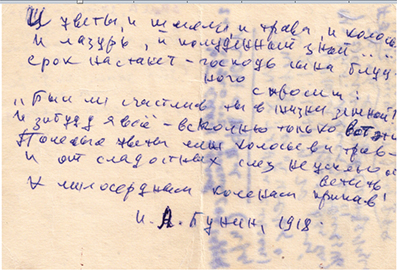 И цветы, и шмели, и трава, и колосья
И лазурь, и полуденный зной...
срок настанет - господь сына блуд-
ного
спросит:
"Был ли счастлив ты в жизни земной?
И забуду я всё - вспомню только вот эти
Полевые пути меж колосьев и трав -
И от сладостных слез не успею от-
ветить
К милосердным коленам припав
И. А. Бунин, 1918.